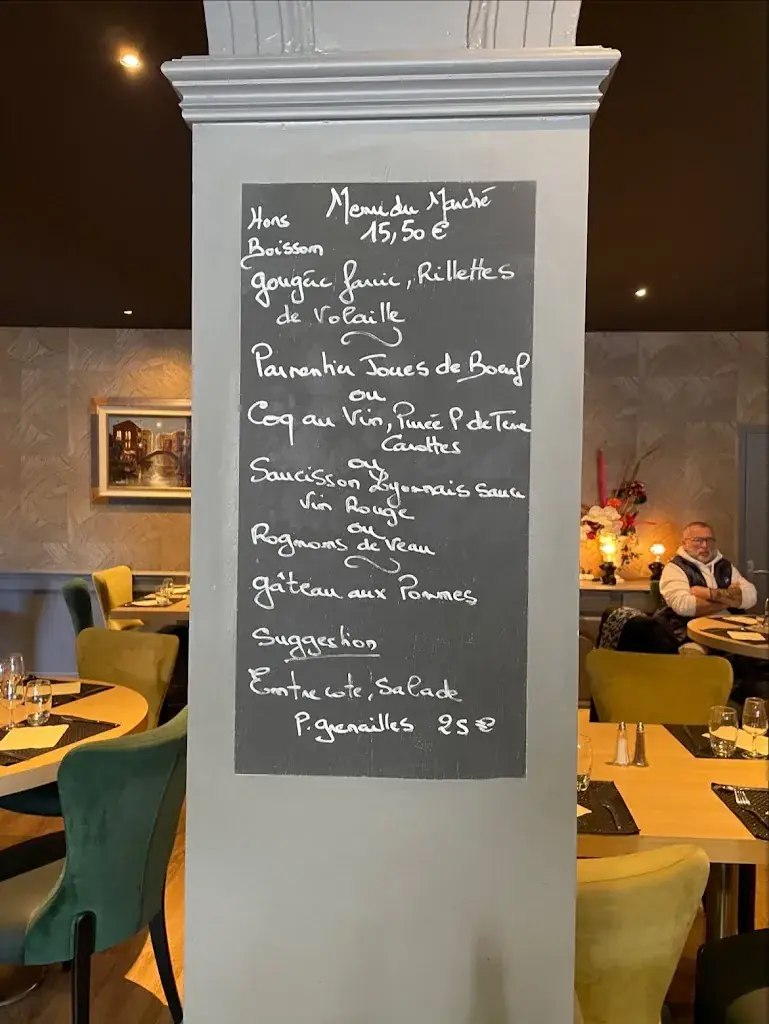 Menu du Marché
Hors 15,50 €
Boisson
gougère farcie, Rillettes
de Volaille
Parmentier Joues de Boeuf
ou
Coq au Vin, Purée P de Terre
Carottes
ou
Saucisson Lyonnais sauce
Vin Rouge
ou
Rognons de Veau
gâteau aux Pommes
Suggestion
Entrecote, Salade
P. grenailles 25 €